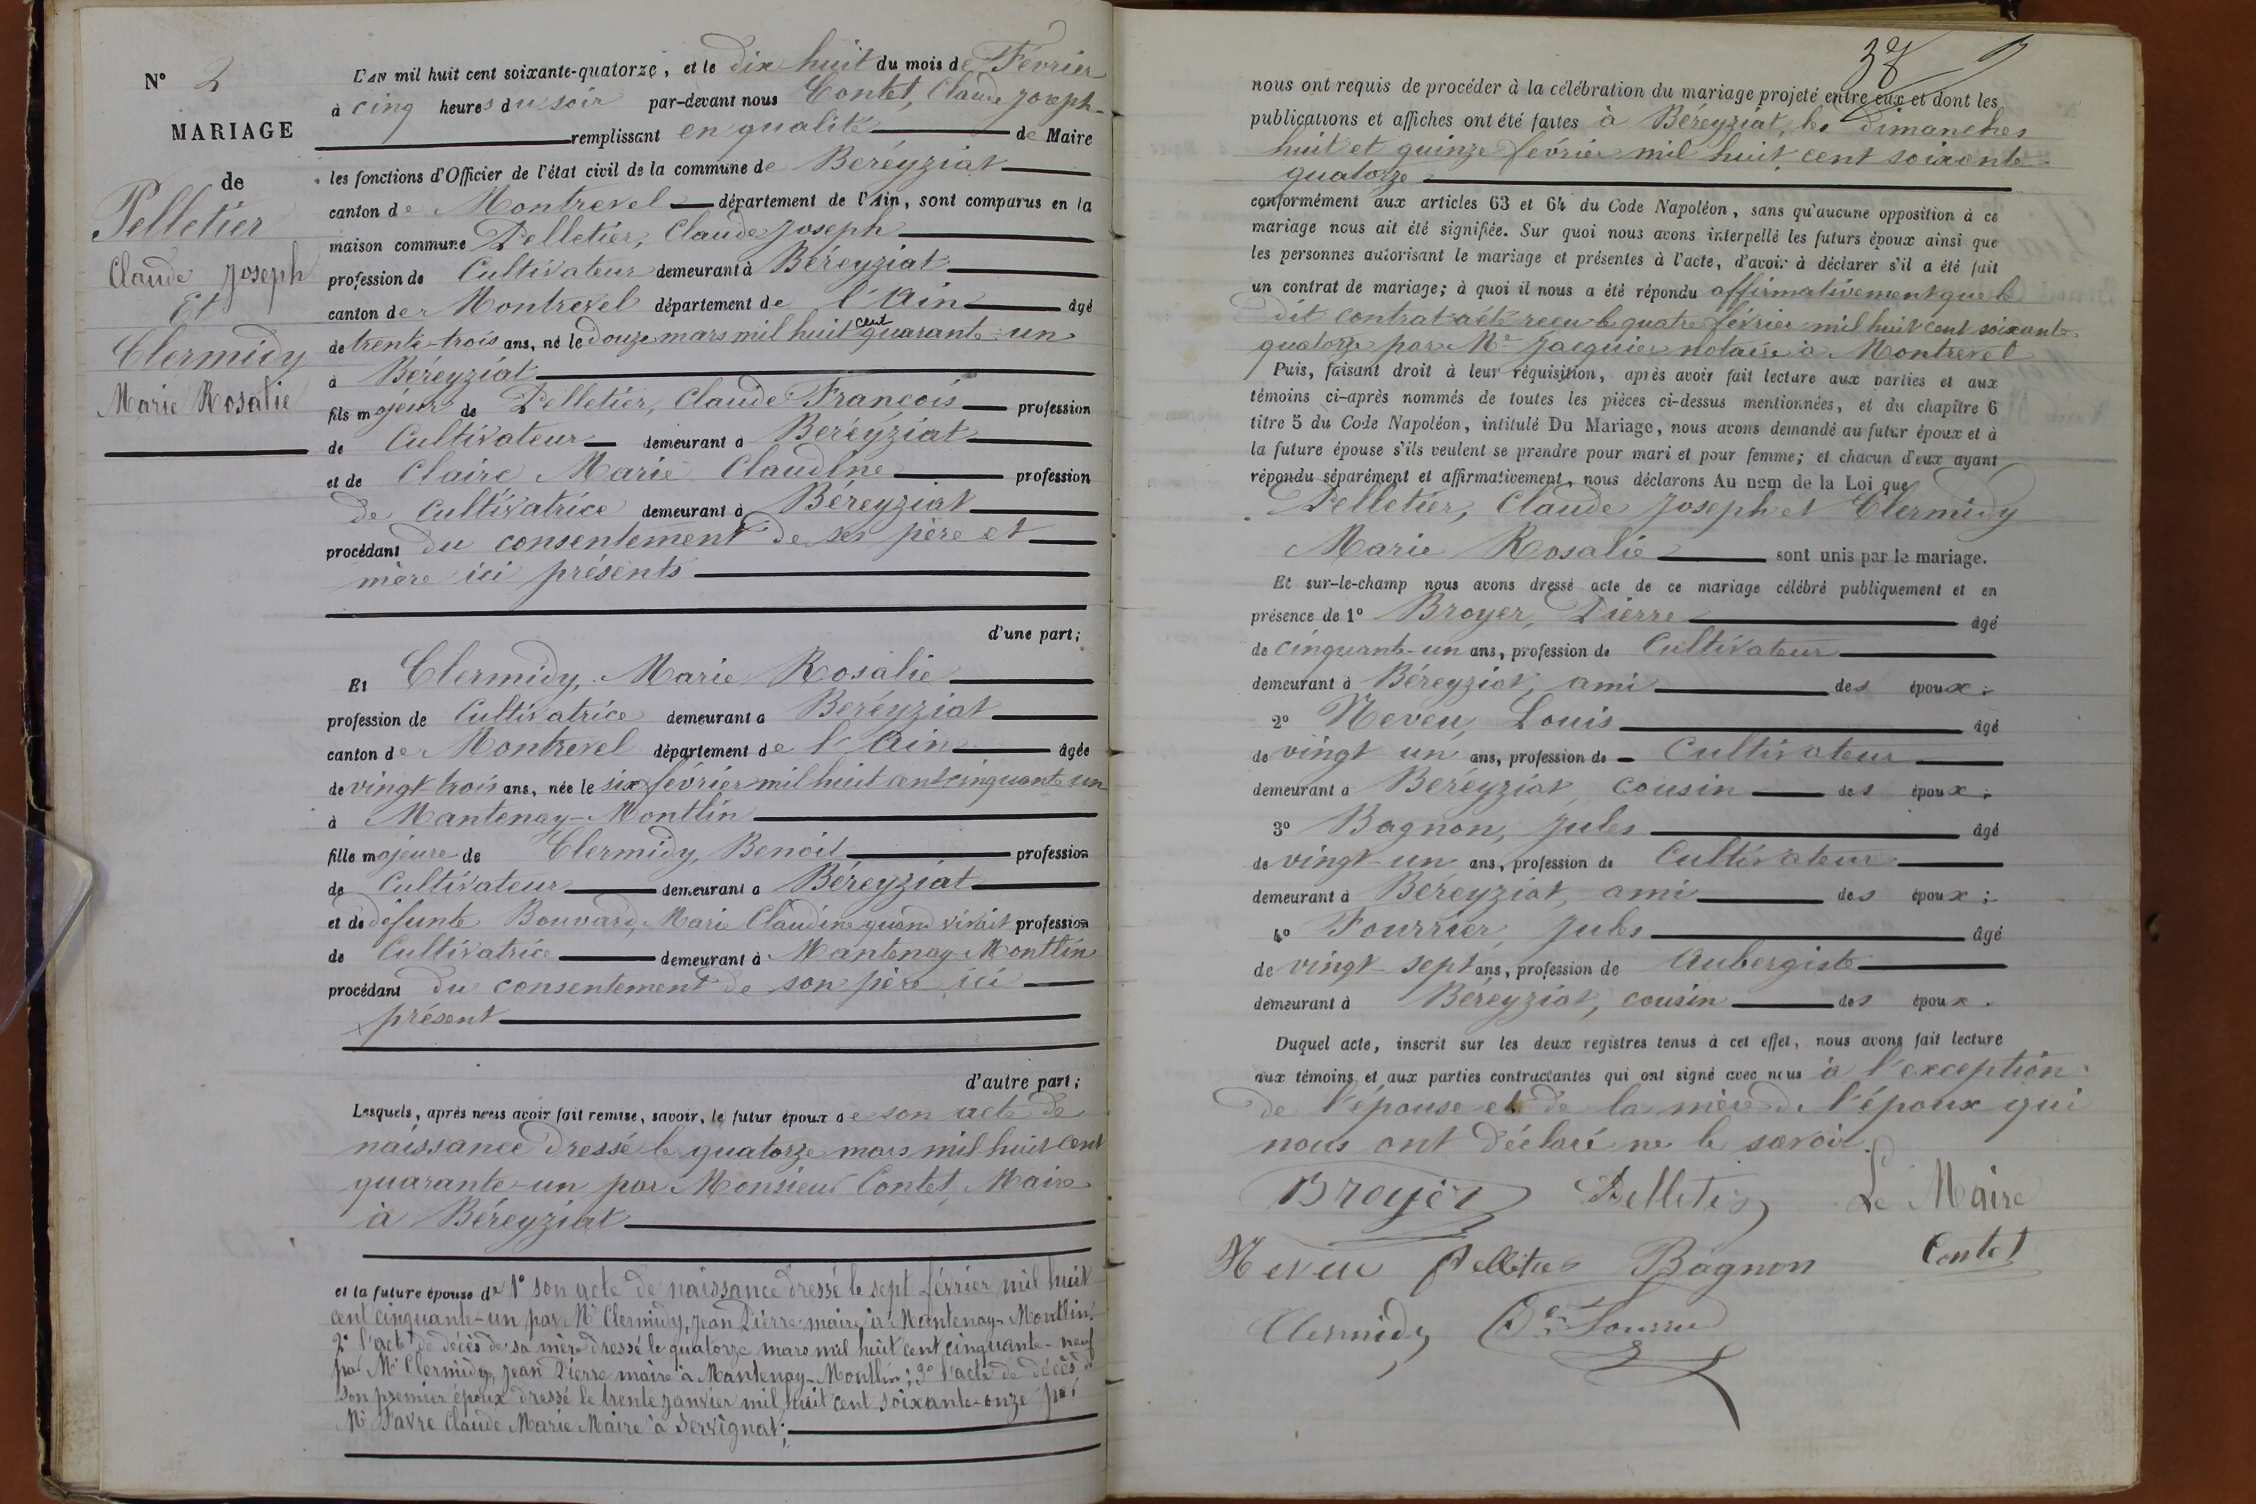 N° 2
MARIAGE
de
Pelletier
Claude Joseph
Et
Clermidy
Marie Rosalie
L'an mil huit cent soixante-quatorze, et le dix huit du mois de Février
à cinq heures du soir par-devant nous Contet, Claude Joseph
remplissant en qualité de Maire
les fonctions d'Officier de l'état civil de la commune de Beréyziat
canton de Montrevel département de l'Ain, sont comparus en la
maison commune Pelletier, Claude Joseph
profession de Cultivateur demeurant à Béreyziat
canton de Montrevel département de l'Ain âgé
de trente-trois ans, né le douze mars mil huit cent quarante-un
à Béreyziat
fils majeur de Pelletier, Claude François profession
de Cultivateur demeurant à Beréyziat
et de Claire Marie Claudine profession
de Cultivatrice demeurant à Béreyziat
procédant du consentement de ses père et
mère ici présents
d'une part;
Et Clermidy, Marie Rosalie
profession de Cultivatrice demeurant à Beréyziat
canton de Montrevel département de l'Ain âgée
de vingt trois ans, née le six février mil huit cent cinquante un
à Mantenay-Montlin
fille majeure de Clermidy, Benoit profession
de Cultivateur demeurant à Béreyziat
et de défunte Bouvard, Marie Claudine quand vivait profession
de Cultivatrice demeurant à Mantenay-Montlin
procédant du consentement de son père ici
présent
d'autre part;
Lesquels, après nous avoir fait remise, savoir, le futur époux de son acte de
naissance dressé le quatorze mars mil huit cent
quarante-un par Monsieur Contet, Maire
à Béreyziat
et la future épouse de 1° son acte de naissance dressé le sept février mil huit
cent cinquante-un par Mr Clermidy, Jean Pierre maire à Mantenay-Montlin;
2° l'acte de décès de sa mère dressé le quatorze mars mil huit cent cinquante-neuf
par Mr Clermidy, Jean Pierre maire à Mantenay-Montlin; 3° l'acte de décès de
son premier époux dressé le trente janvier mil huit cent soixante-onze par
Mr Favre Claude Marie Maire à Servignat;
nous ont requis de procéder à la célébration du mariage projeté entre eux et dont les
publications et affiches ont été faites à Béreyziat, les dimanches
huit et quinze février mil huit cent soixante-
quatorze
conformément aux articles 63 et 64 du Code Napoléon, sans qu'aucune opposition à ce
mariage nous ait été signifiée. Sur quoi nous avons interpellé les futurs époux ainsi que
les personnes autorisant le mariage et présentes à l'acte, d'avoir à déclarer s'il a été fait
un contrat de mariage; à quoi il nous a été répondu affirmativement que le
dit contrat a été reçu le quatre février mil huit cent soixante-
quatorze par Me Jacquier notaire à Montrevel
Puis, faisant droit à leur réquisition, après avoir fait lecture aux parties et aux
témoins ci-après nommés de toutes les pièces ci-dessus mentionnées, et du chapitre 6
titre 5 du Code Napoléon, intitulé Du Mariage, nous avons demandé au futur époux et à
la future épouse s'ils veulent se prendre pour mari et pour femme; et chacun d'eux ayant
répondu séparément et affirmativement, nous déclarons Au nom de la Loi que
Pelletier, Claude Joseph et Clermidy
Marie Rosalie sont unis par le mariage.
Et sur-le-champ nous avons dressé acte de ce mariage célébré publiquement et en
présence de 1° Broyer, Pierre âgé
de cinquante-un ans, profession de Cultivateur
demeurant à Béreyziat, ami des époux;
2° Neveu, Louis âgé
de vingt un ans, profession de Cultivateur
demeurant à Beréyziat, cousin des époux;
3° Bagnon, Jules âgé
de vingt-un ans, profession de Cultivateur
demeurant à Béreyziat, ami des époux;
4° Fourrier, Jules âgé
de vingt-sept ans, profession de Aubergiste
demeurant à Béreyziat, cousin des époux.
Duquel acte, inscrit sur les deux registres tenus à cet effet, nous avons fait lecture
aux témoins et aux parties contractantes qui ont signé avec nous à l'exception
de l'épouse et de la mère de l'époux qui
nous ont déclaré ne le savoir.
Broyer Pelletier Le Maire
Neveu Pelletier Bagnon Contet
Clermidy